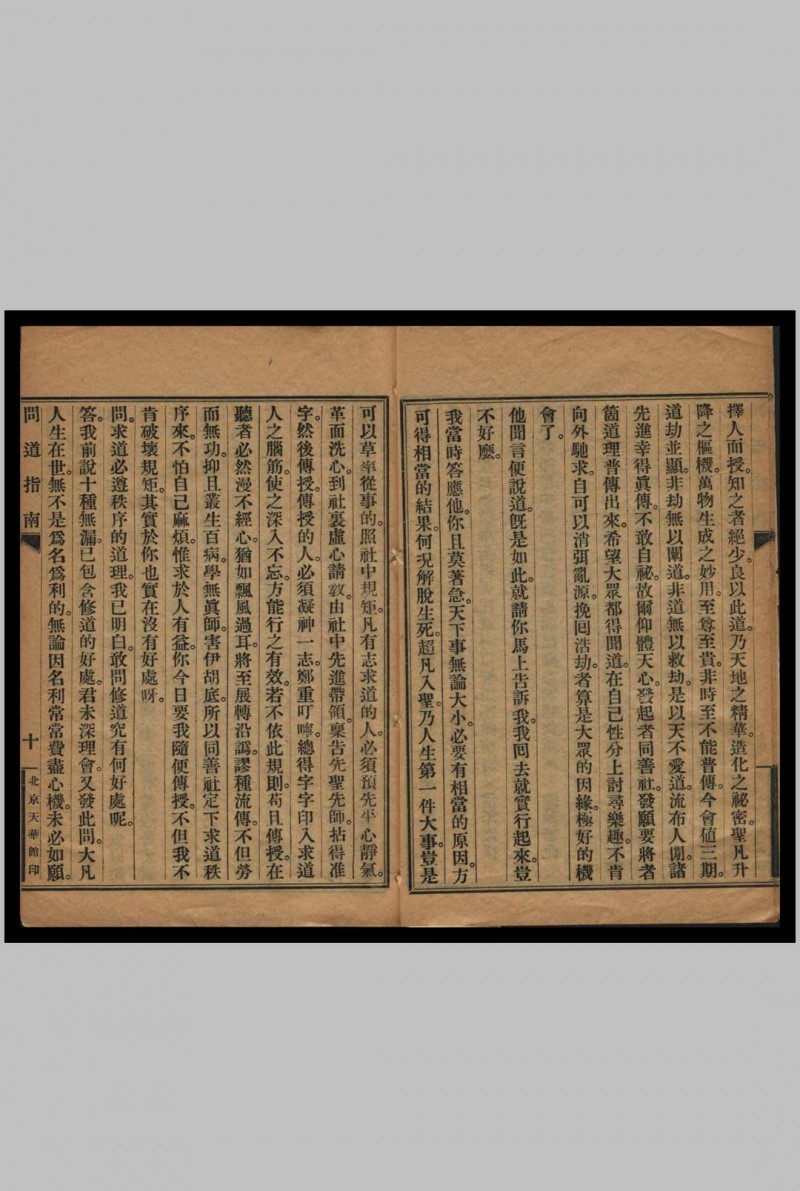 擇人而授。知之者絕少。良以此道。乃天地之精華。造化之秘密。聖凡升
降之樞機。萬物生成之妙用。至尊至貴。非時至不能普傳。今會値三期。
道劫並顯。非劫無以闡道。非道無以救劫。是以天不愛道。流布人間。諸
先進幸得眞傳。不敢自祕。故爾仰體天心。發起者同善社。發願要將者
箇道理普傳出來。希望大眾都得聞道。在自己性分上討尋樂趣。不肯
向外馳求。自可以消弭亂源。挽囘浩劫。者算是大眾的因緣。極好的機
會了。
他聞言便說道。旣是如此。就請你馬上告訴我。我囘去就實行起來。豈
不好麼。
我當時答應他。你且莫著急。天下事無論大小。必要有相當的原因。方
可得相當的結果。何况解脫生死。超凡入聖。乃人生第一件大事。豈是
可以草率從事的。照社中規矩。凡有志求道的人。必須預先平心靜氣。
革面洗心。到社裏虛心請敎。由社中先進帶領。稟告先聖先師。拈得准
字。然後傳授。傳授的人。必須凝神一志。鄭重叮嚀。總得字字印入求道
人之腦筋。使之深入不忘。方能行之有效。若不依此規則。苟且傳授。在
聽者必然漫不經心。猶如飄風過耳。將至展轉沿譌。謬種流傳。不但勞
而無功。抑且叢生百病。學無眞師。害伊胡底。所以同善社定下求道秩
序來。不怕自己麻煩。惟求於人有益。你今日要我隨便傳授。不但我不
肯破壞規矩。其實於你也實在沒有好處呀。
問。求道必遵秩序的道理。我已明白。敢問修道究有何好處呢。
答。我前說十種無漏。已包含修道的好處。君未深理會。又發此問。大凡
人生在世。無不是爲名爲利的。無論因名利常常費盡心機。未必如願。
問道指南
十
北京天華館印